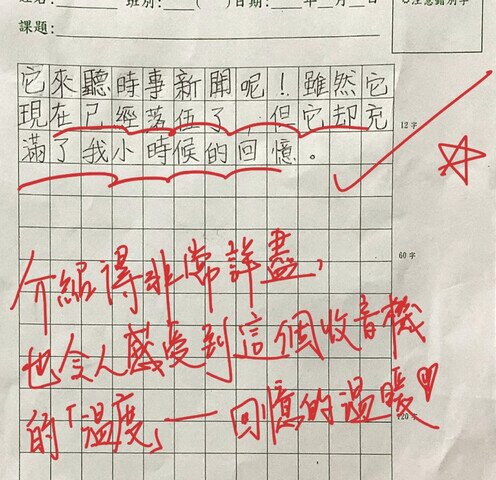 姓名:______ 班別:____( )日期:____年__月__日
注意錯別字
課題:
它來聽時事新聞呢!雖然它
現在已經落伍了,但它却充
滿了我小時候的回憶。
12字
60字
120字
介紹得非常詳盡,
也令人感受到這個收音機
的「溫度」— 回憶的溫暖♡